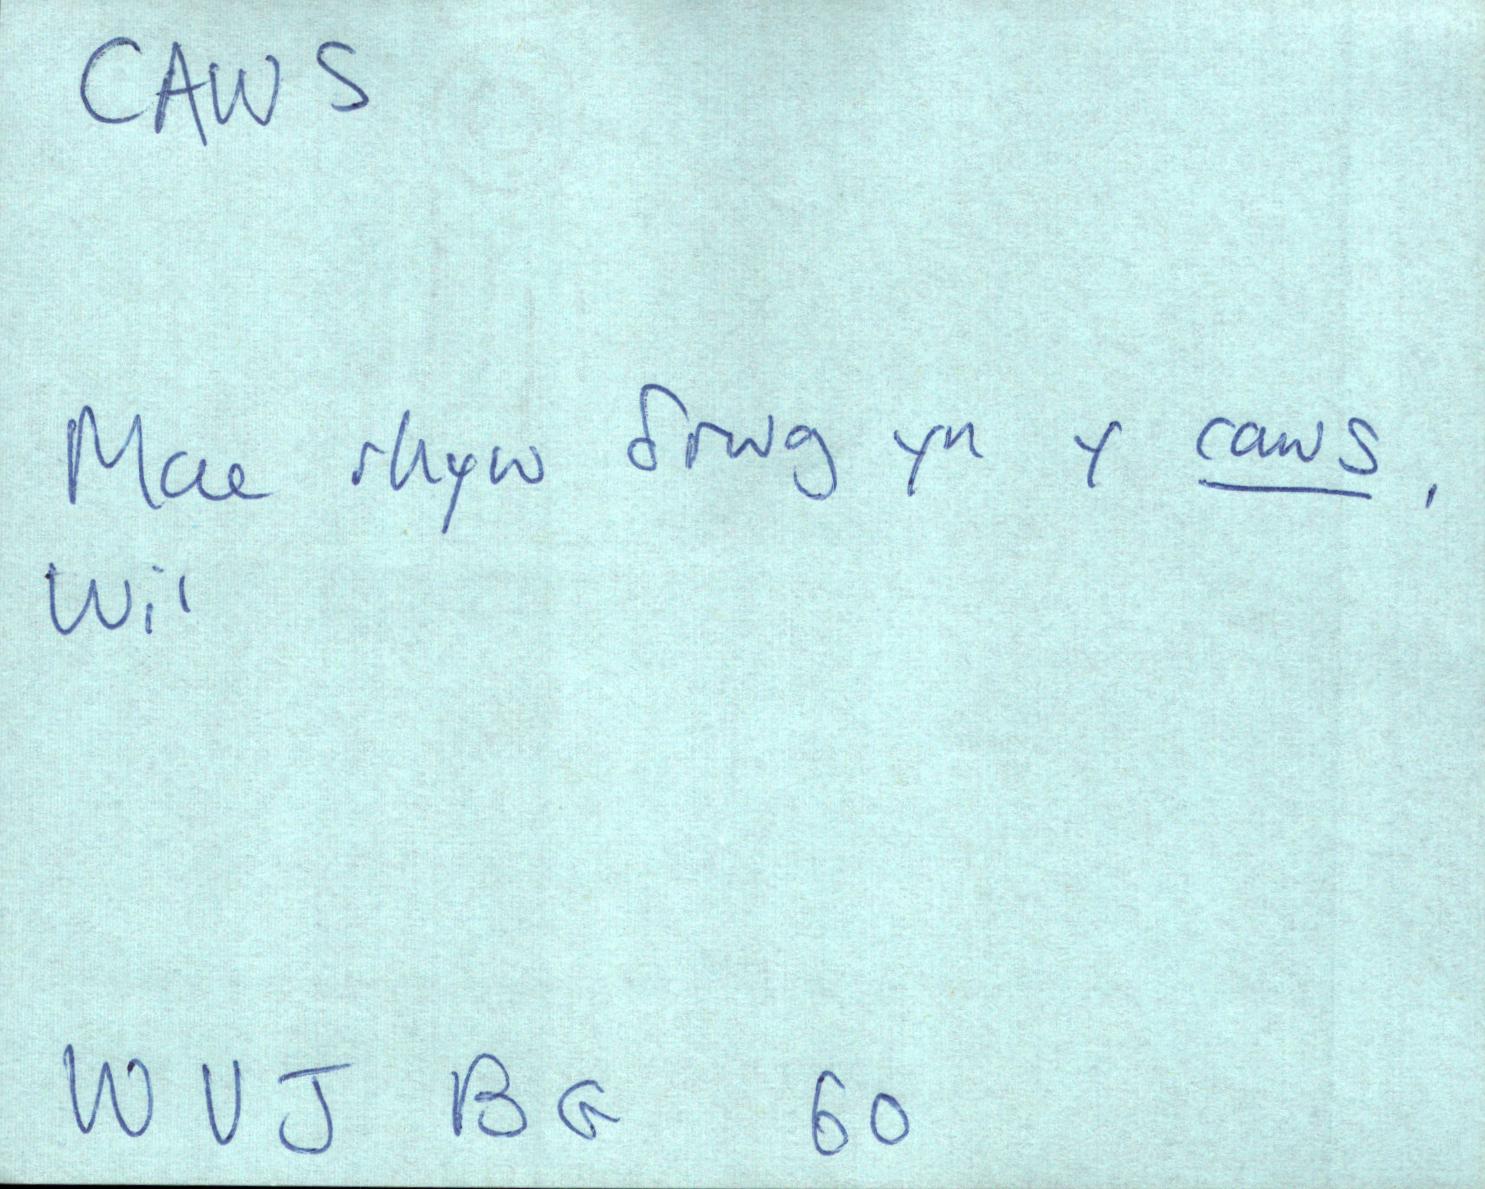 CAWS
Mae rhyw δrwg yn y caws,
Wil
WVJ BG 60